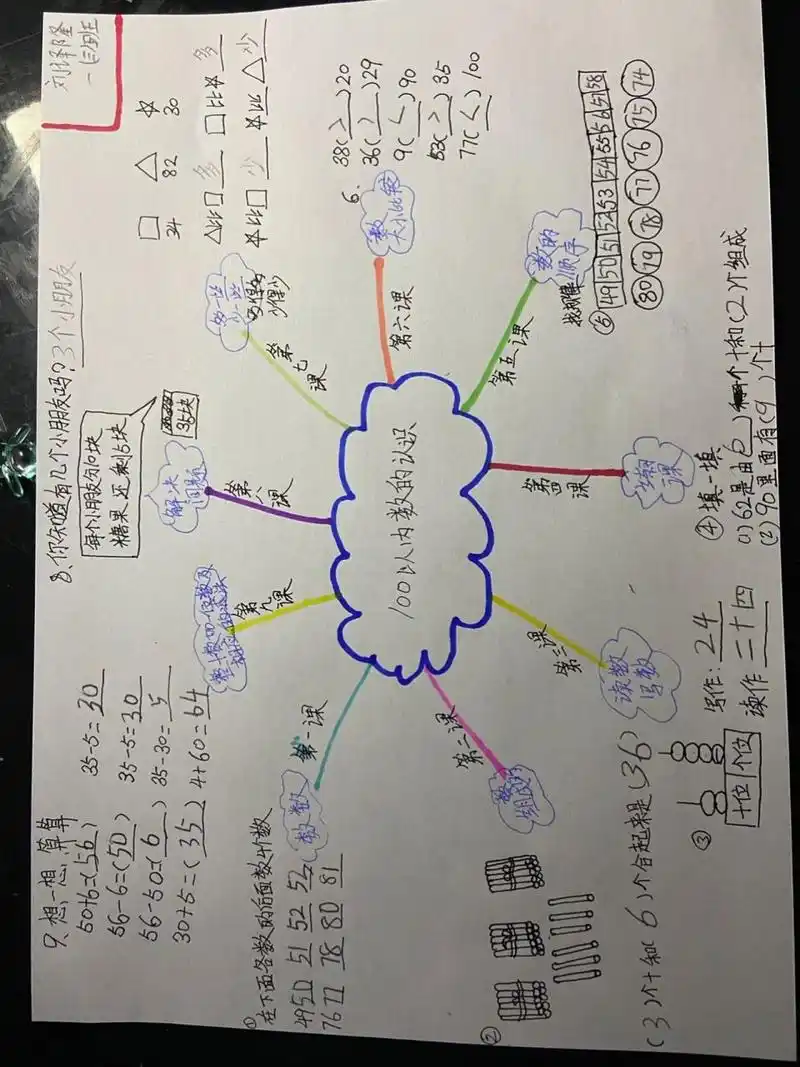 刘译隆
一(三)班
100以内数的认识
第一课
数数
①
在下面各数的后面数4个数
49 50 51 52 52
76 77 78 80 81
第二课
数的组成
②
(3)个十和(6)个合起来是(36)
第三课
读数
写数
③
十位 个位
写作：24
读作 二十四
第四课
④填一填
(1)62是由6个十和(2)个组成
(2)90里面有(9)个十
第五课
数的
顺序
找规律
⑤ 49 50 51 52 53 54 55 56 57 58
80 79 78 77 76 75 74
第六课
数
大小比较
6.
38(>)20
36(>)29
9(<)90
53(>)35
77(<)100
第七课
多一些
少一些
多得多
少得少
□ △ ☆
34 82 30
△比□多 □比☆多
☆比□少 ☆比△少
第八课
解决
问题
8、你知道有几个小朋友吗？3个小朋友
每个小朋友分10块
糖果还剩6块
36块
第九课
整十数加一位数及
相应的减法
9、想一想，算算
50+6=(56) 35-5=30
56-6=(50) 35-5=30
56-50=(6) 35-30=5
30+5=(35) 4+60=64